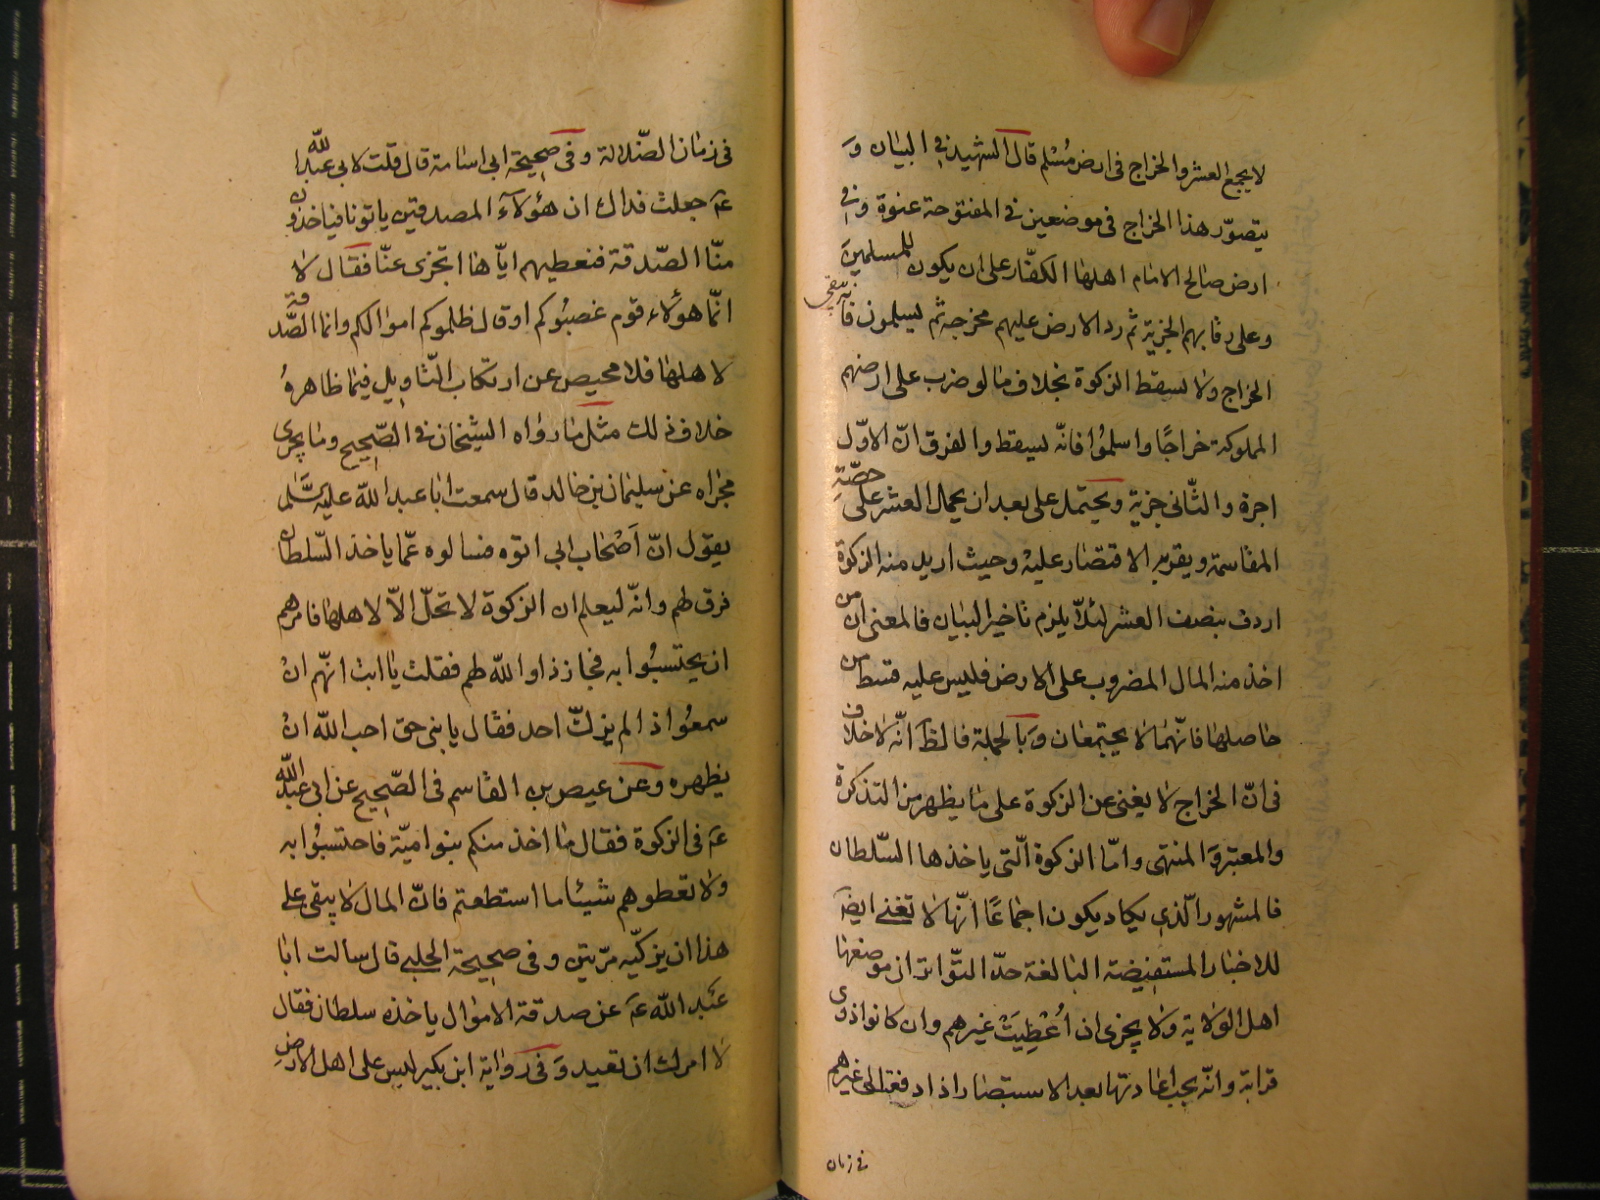 لا يجمع العشر والخراج فى ارض مُسْلم قال الشهيد فى البيان وَ
يتصوّر هذا الخراج فى موضعين فى المفتوحة عنوة وفى
ارض صالح الامام اهلها الكفّار على ان يكون للمسلمين
وعلى رقابهم الجزية ثم رد الارض عليهم مخرجه ثم يسلمون فانّه يبقى
الخراج ولا يسقط الزكوة بخلاف ما لو ضرب على ارضهم
المملوكة خراجًا واسلمُوا فانّه يسقط والفرق انّ الاوّل
اجرة والثّانى جزية ويحتمل على بعد ان يحمل العشر على حصّة
المقاسمة ويقوم الاقتصار عليه وحيث اريد منه الزكوة
اردف بنصف العشر لئلّا يلزم تاخير البيان فالمعنى ان من
اخذ منه المال المضروب على الارض فليس عليه قسط من
حاصلها فانّهما لا يجتمعان وَبالجملة فالظ انّه لا خلاف
فى انّ الخراج لا يغنى عن الزكوة على ما يظهر من التذكرة
والمعتبر وَالمنتهى وامّا الزكوة الّتى ياخذها السّلطان
فالمشهور الّذى يكاد يكون اجماعًا انّها لا تغنى ايضًا
للاخبار المستفيضة البالغة حدّ التّواتر ان موضعها
اهل الولاية ولا يجزى ان اُعْطِيَتْ غيرهم وان كانوا ذوى
قرابة وانّه يجب اعادتها بعد الاستبصار اذا دفعها الى غيرهم
فى زمان
فى زمان الضّلالة وفى صحيحة ابى اسامة قال قلت لابى عبد الله
عَ جعلت فداك ان هؤلآء المصدقين ياتونا فياخذون
منّا الصّدقة فنعطيهم ايّاها اتجزى عنّا فقال لا
انّما هؤلاء قوم غصبُوكم او قال ظلموكم اموالكم وانما الصّدقة
لاهلها فلا محيص عن ارتكاب التّاويل فيما ظاهرهُ
خلاف ذلك مثل ما رواه الشيخان فى الصّحيح وما يجرى
مجراه عن سليمان بن خالد قال سمعت ابا عبد الله عليه السَّلم
يقول انّ اَصْحاب ابى اتوه فسالوه عمّا ياخذ السّلطان
فرق لهم وانّه ليعلم ان الزكوة لا تحلّ الّا لاهلها فامرهم
ان يحتسبُوا به فجاز ذا والله لهم فقلت يا ابت انّهم ان
سمعُوا ذا لم يزكّ احد فقال يا بنى حق احب الله انْ
يظهره وعن عيص بن القاسم فى الصّحيح عن ابى عبد الله
عَ فى الزكوة فقال ما اخذ منكم بنو اميّة فاحتسبُوا به
ولا تعطوهم شيئا ما استطعتم فانّ المال لا يبقى على
هذا ان يزكّيه مرّتين وفى صحيحة الحلبى قال سالت ابا
عبَد الله عَ عن صدقة الاموال ياخذه سلطان فقال
لا امرك ان تعيد وَفى رَواية ابن بكير ليس على اهل الارض